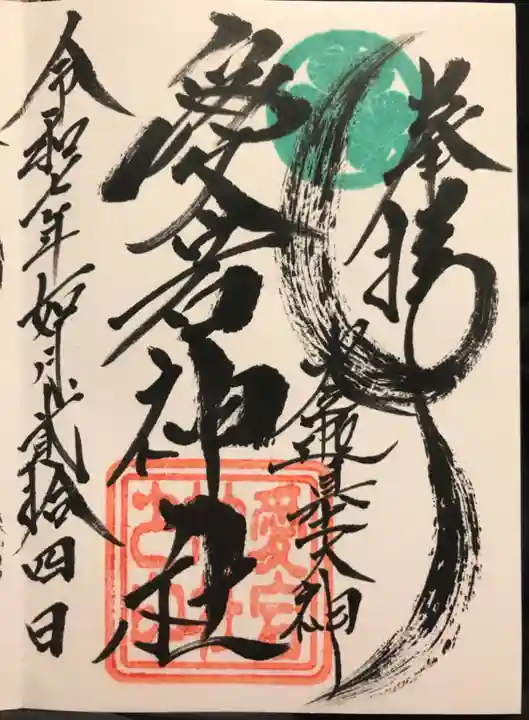 奉拝
大神
愛宕神社
愛宕
神社
之印
令和七年如月貳拾四日